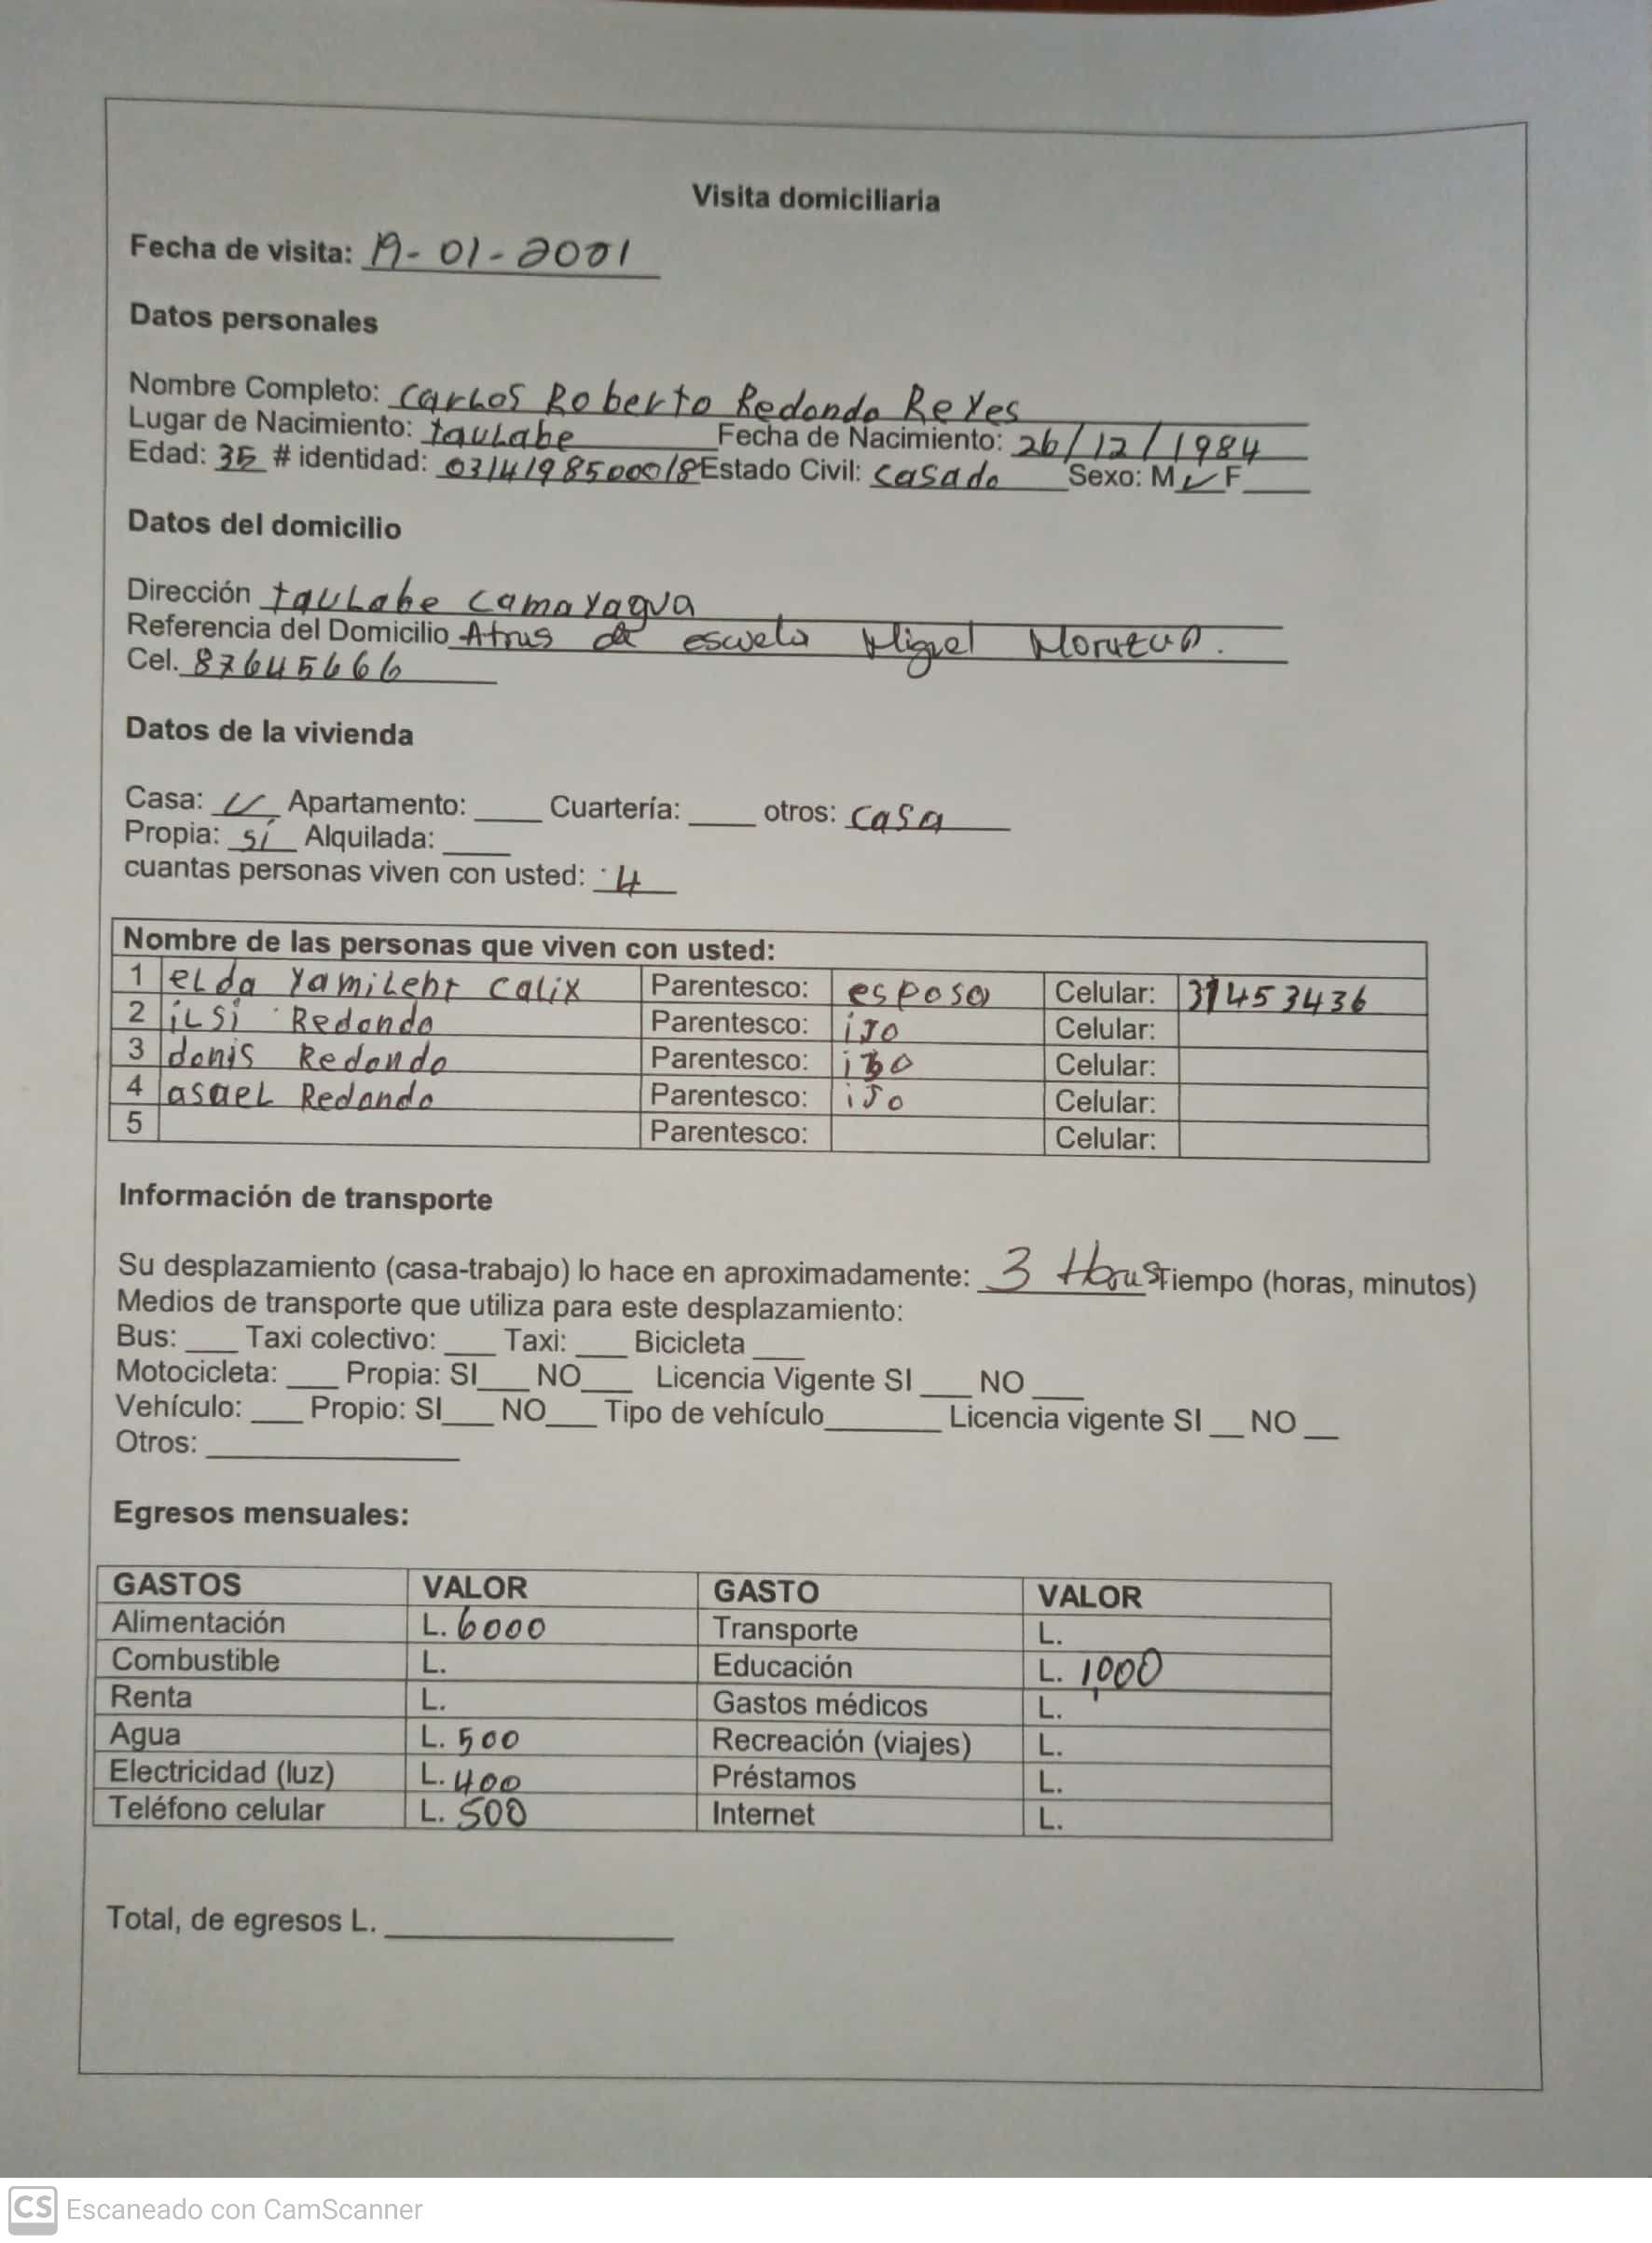 Visita domiciliaria
Fecha de visita: 19-01-2001
Datos personales
Nombre Completo: Carlos Roberto Redondo Reyes
Lugar de Nacimiento: taulabe Fecha de Nacimiento: 26/12/1984
Edad: 35 # identidad: 0314198500018 Estado Civil: casado Sexo: M ✓ F
Datos del domicilio
Dirección taulabe camayagua
Referencia del Domicilio Atras de escuela Miguel
Cel. 87645666
Datos de la vivienda
Casa: ✓ Apartamento: ____ Cuartería: ____ otros: casa
Propia: sí Alquilada: ____
cuantas personas viven con usted: 4
Nombre de las personas que viven con usted:
1 elda yamileht calix Parentesco: esposa Celular: 31453436
2 ilsi Redondo Parentesco: ijo Celular:
3 donis Redondo Parentesco: ijo Celular:
4 asael Redondo Parentesco: ijo Celular:
5 Parentesco: Celular:
Información de transporte
Su desplazamiento (casa-trabajo) lo hace en aproximadamente: 3 Horas Tiempo (horas, minutos)
Medios de transporte que utiliza para este desplazamiento:
Bus: ___ Taxi colectivo: ___ Taxi: ___ Bicicleta ___
Motocicleta: ___ Propia: SI___ NO___ Licencia Vigente SI ___ NO ___
Vehículo: ___ Propio: SI___ NO___ Tipo de vehículo_______ Licencia vigente SI __ NO __
Otros: _______________
Egresos mensuales:
GASTOS VALOR GASTO VALOR
Alimentación L. 6000 Transporte L.
Combustible L. Educación L. 1,000
Renta L. Gastos médicos L.
Agua L. 500 Recreación (viajes) L.
Electricidad (luz) L. 400 Préstamos L.
Teléfono celular L. 500 Internet L.
Total, de egresos L. _________________
CS Escaneado con CamScanner